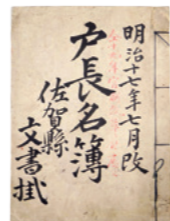 明治十七年七月改
戸長名簿
佐賀縣
文書掛